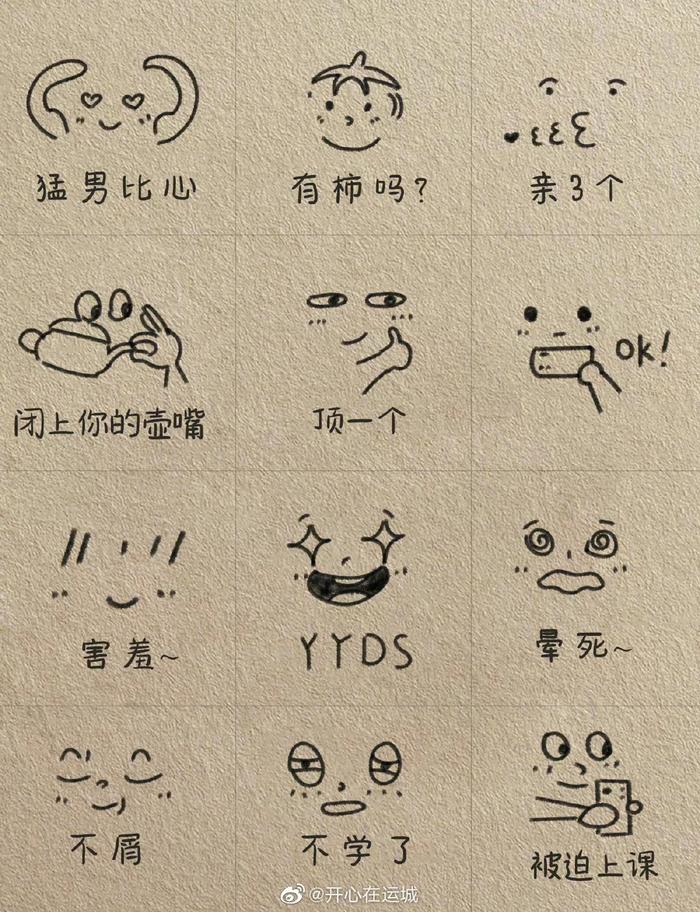 猛男比心
有柿吗?
亲3个
闭上你的壶嘴
顶一个
OK!
害羞~
YYDS
晕死~
不屑
不学了
被迫上课
@开心在运城